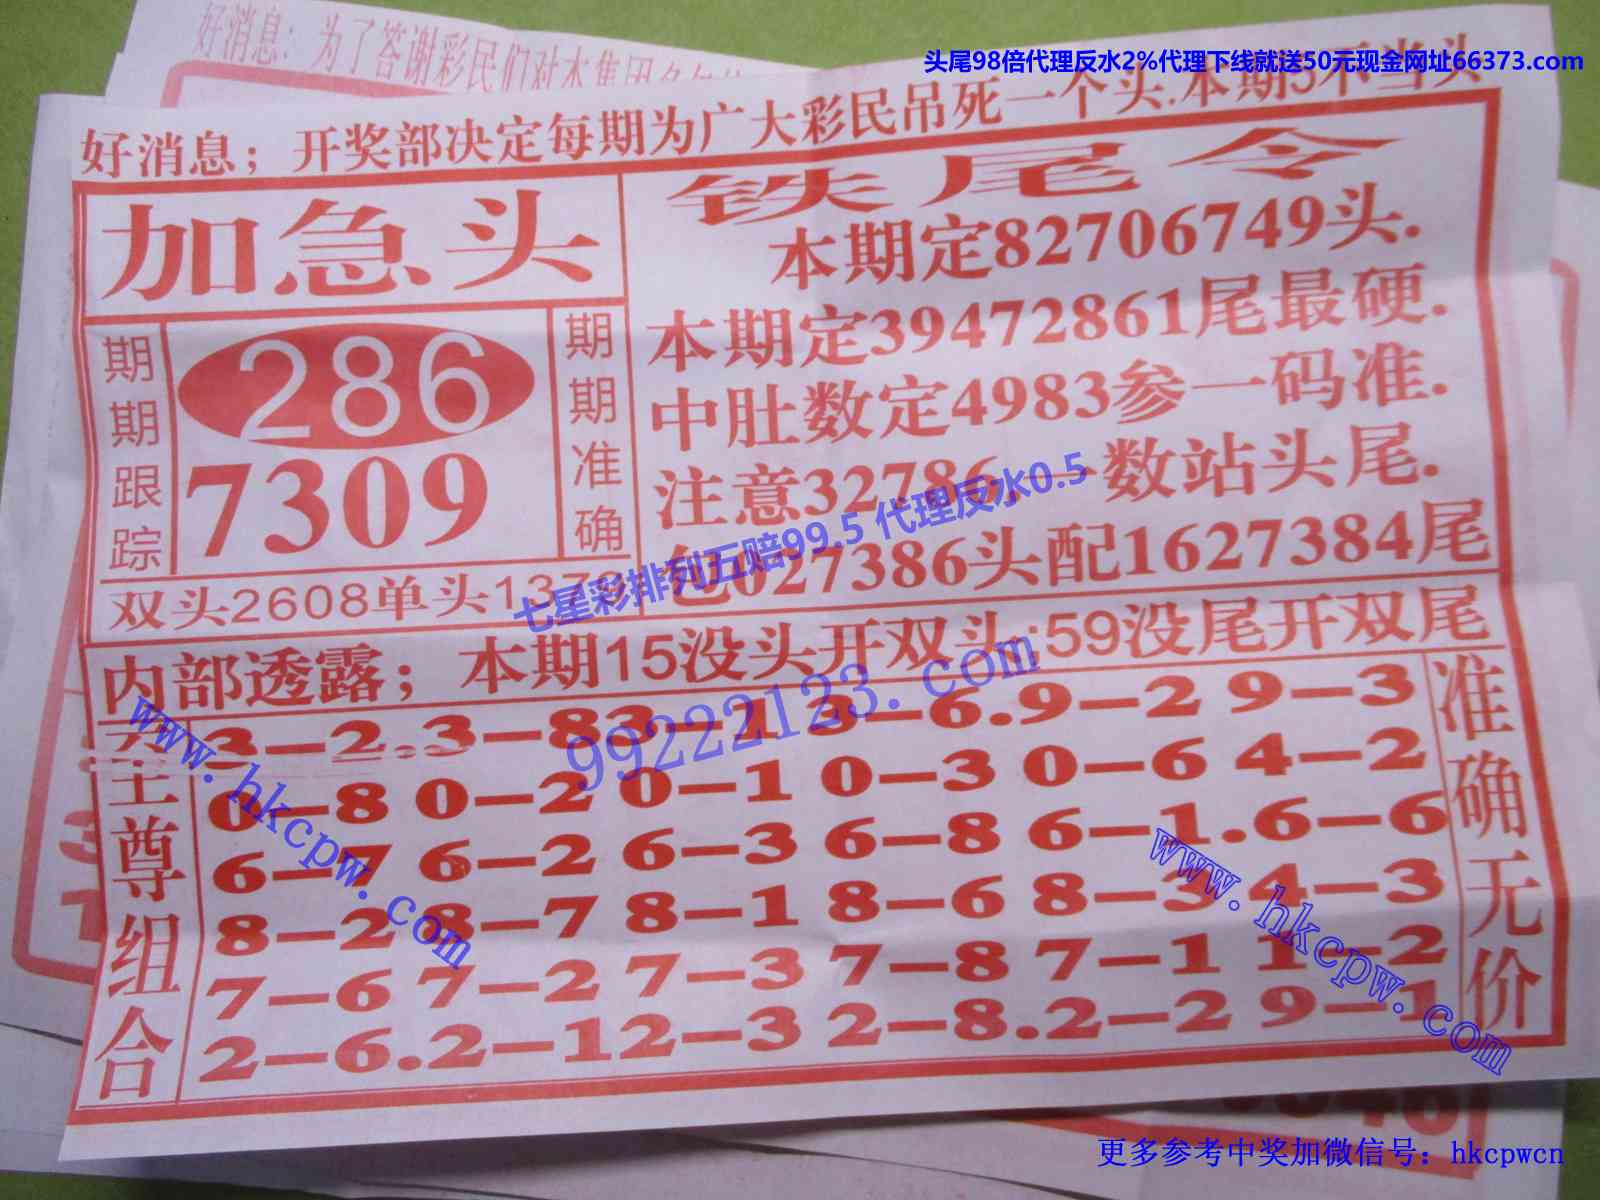 好消息:为了答谢彩民们对本集团
头尾98倍代理反水2%代理下线就送50元现金网址66373.com
好消息;开奖部决定每期为广大彩民吊死一个头.本期5不当头
加急头
期期跟踪
286
7309
期期准确
双头2608单头1379
铁尾令
本期定82706749头.
本期定39472861尾最硬.
中肚数定4983参一码准.
注意32786.一数站头尾.
包027386头配1627384尾
七星彩排列五赔99.5 代理反水0.5
内部透露;本期15没头开双头;59没尾开双尾
99222123.com
至尊组合
3—2.3—83—13—6.9—29—3
0—80—20—10—30—64—2
6—76—26—36—86—1.6—6
8—28—78—18—68—34—3
7—67—27—37—87—11—2
2—6.2—12—32—8.2—29—1
准确无价
www.hkcpw.com
www.hkcpw.com
更多参考中奖加微信号：hkcpwcn